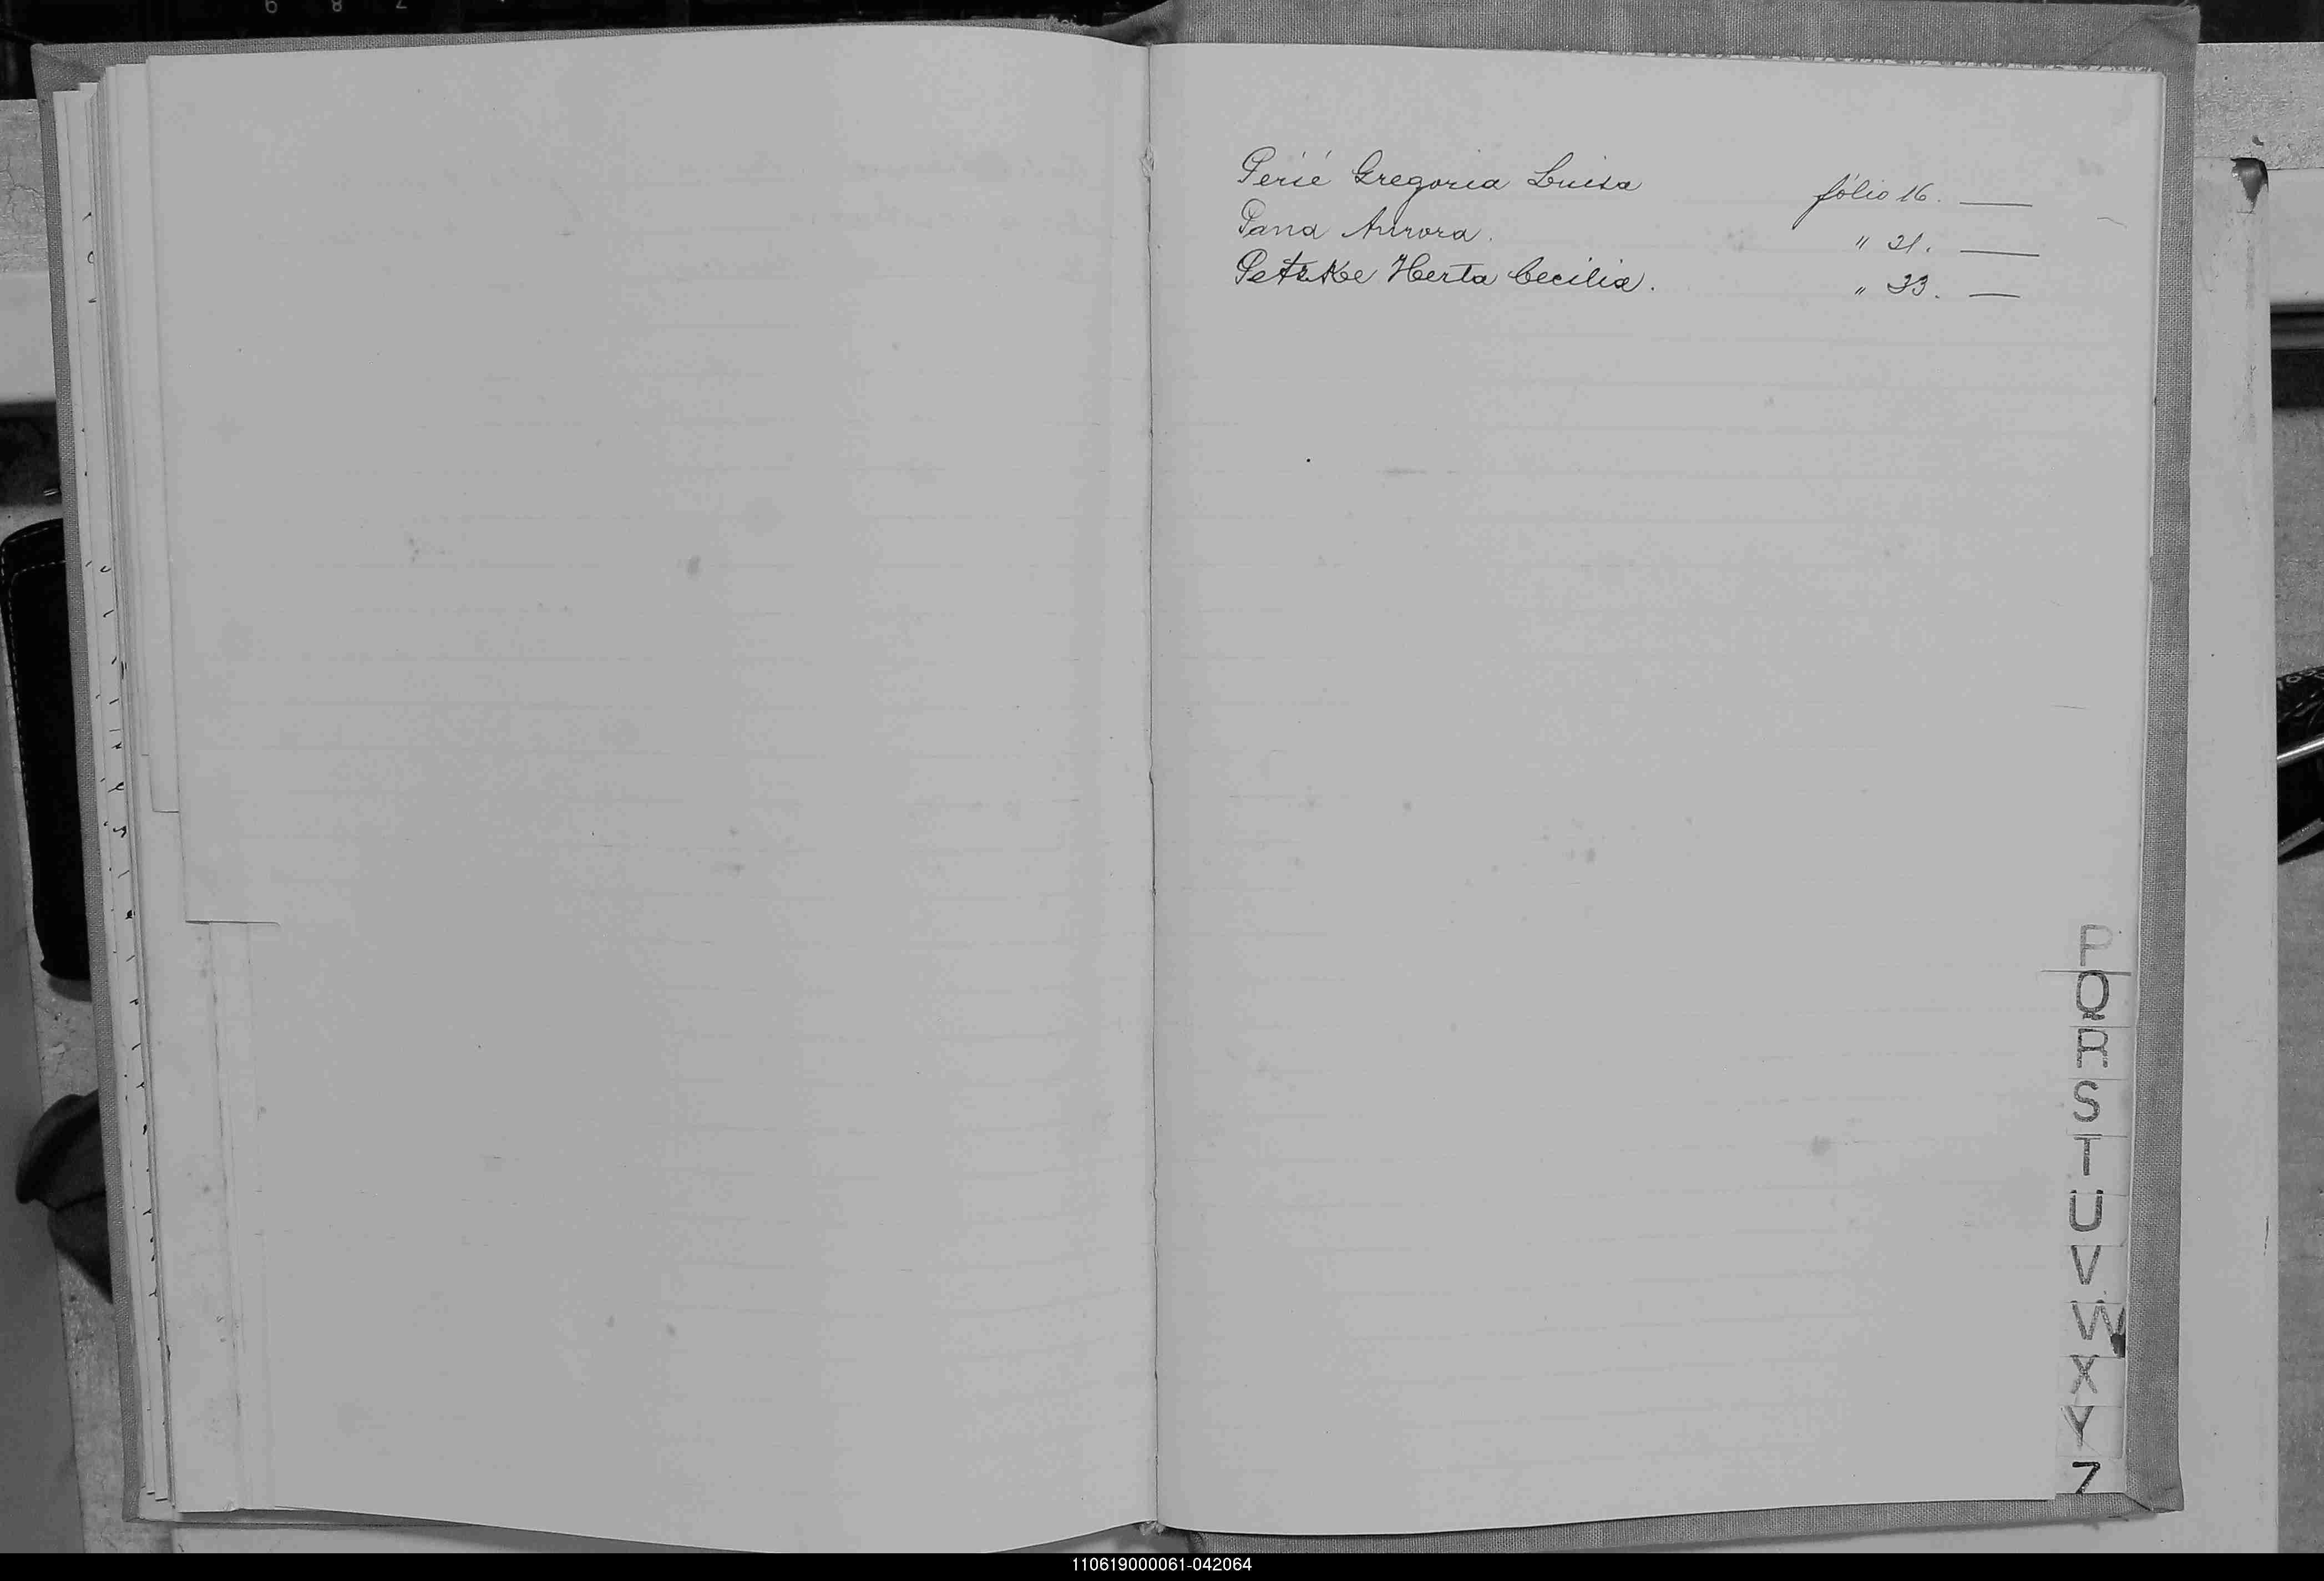 Perié Gregoria Luisa fólio 16. —
Pana Aurora. " 21. —
Petzke Herta Cecilia. " 33. —
P
Q
R
S
T
U
V
W
X
Y
Z
110619000061-042064